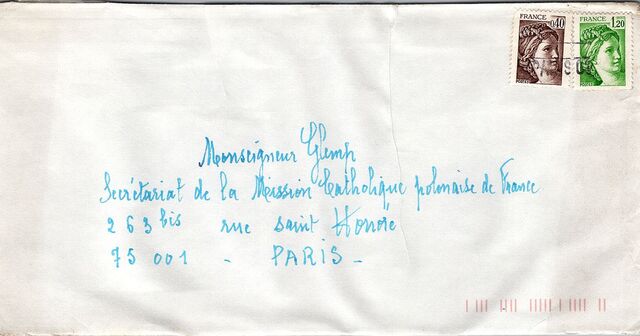 FRANCE
0,40
FRANCE
1,20
PARIS 02
Monseigneur Glemp
Secrétariat de la Mission Catholique polonaise de France
263 bis rue saint Honoré
75 001 - PARIS -